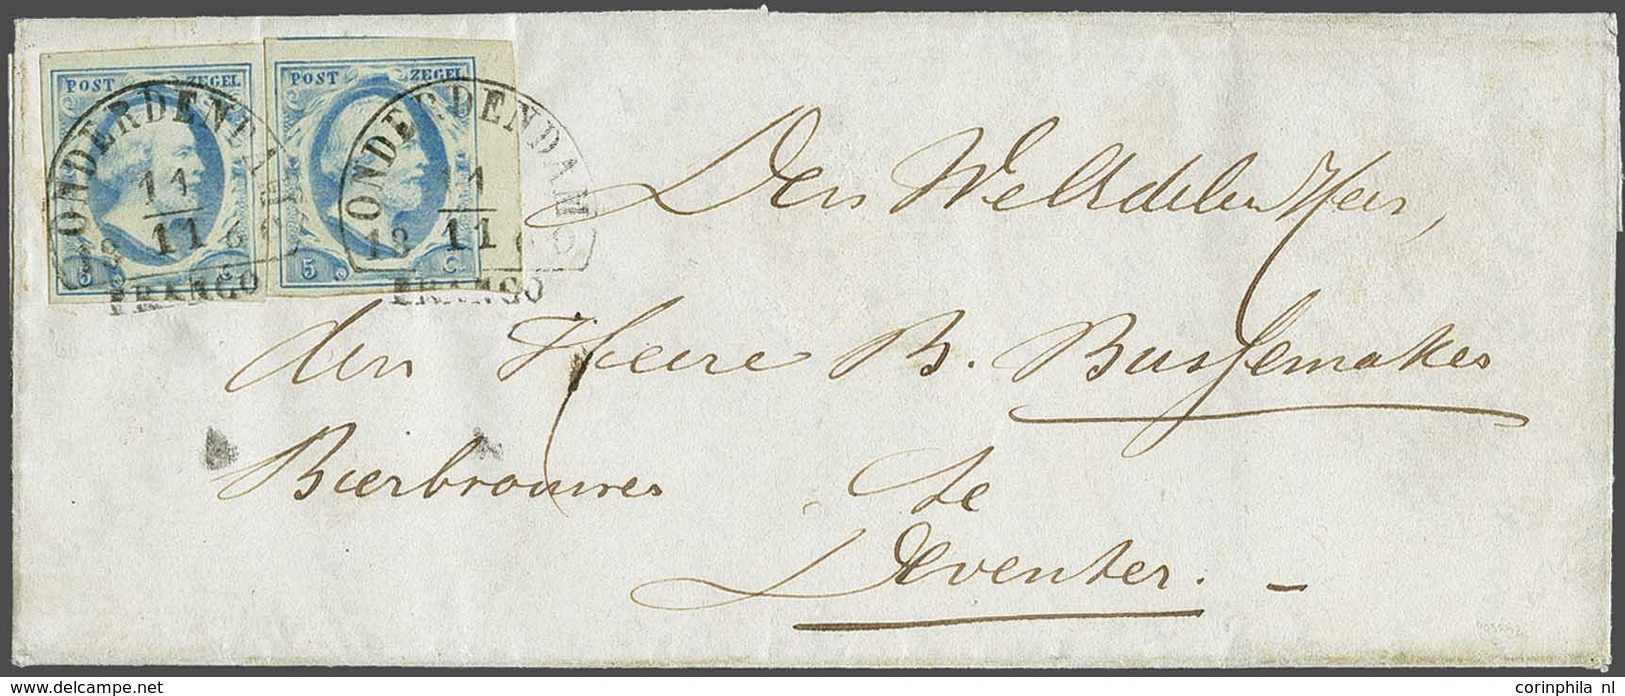 POST ZEGEL
POST ZEGEL
ONDERDENDAM
ONDERDENDAM
11
11
11
11
18 6
18 6
5
5 C.
FRANCO
FRANCO
Den Weledelen Heer,
den Heere B. Bussemaker
Bierbrouwer
te
Deventer.
corinphila nl